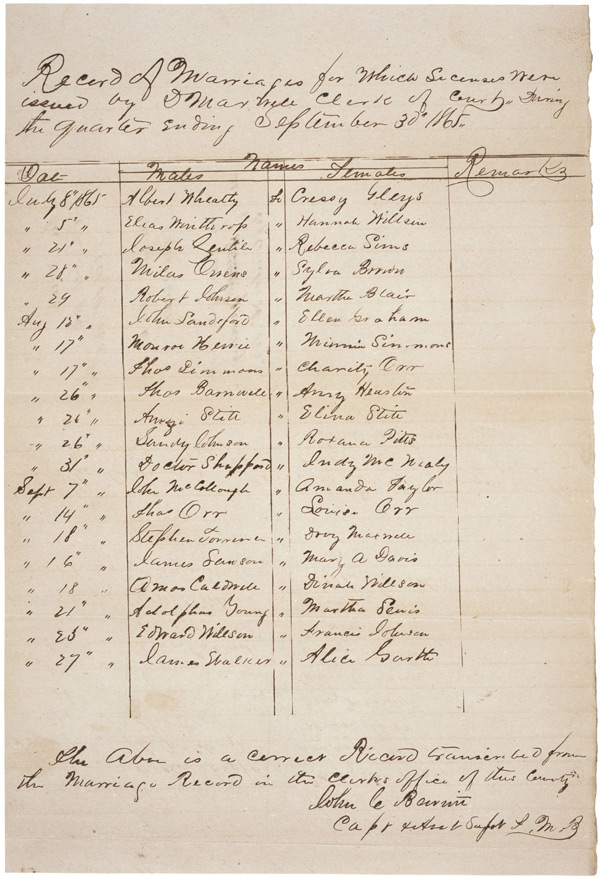 Record of Marriages for Which Licenses Were
issued by D Maxwell Clerk of Court, During
the quarter Ending September 30" 1865.
Names
Date Males Females Remarks
July 8" 1865 Albert Wheatly to Cressy
" 5" " Elias Winthrop " Hannah Willson
" 21" " Joseph " Rebecca Sims
" 28" " Milas Owens " Sylva Brown
" 29 Robert Johnson " Martha Blair
Aug 15" " John Sandeford " Ellen Graham
" 17" " Monroe " Minnie Simmons
" 17" " Thos Simmons " Charity Orr
" 26" " Thos Barnwell " Amy Houston
" 26" " Stitt " Elina Stitt
" 26" " Sandy Johnson " Roxana Pitts
" 31" " Doctor Sheppard " Indy McNealy
Sept 7" " John McCollough " Amanda Taylor
" 14" " Thos Orr " Louisa Orr
" 18" " Stephen " Maxwell
" 16" " James " Mary A Davis
" 18 " Amos Caldwell " Dinah Willson
" 21" " Adolphus Young " Martha Lewis
" 25" " Edward Willson " Francis Johnson
" 27" " James Walker " Alice Garth
The Above is a correct Record transcribed from
the Marriage Record in the Clerks office of this County
John C
Capt & Asst Supt F. M. B